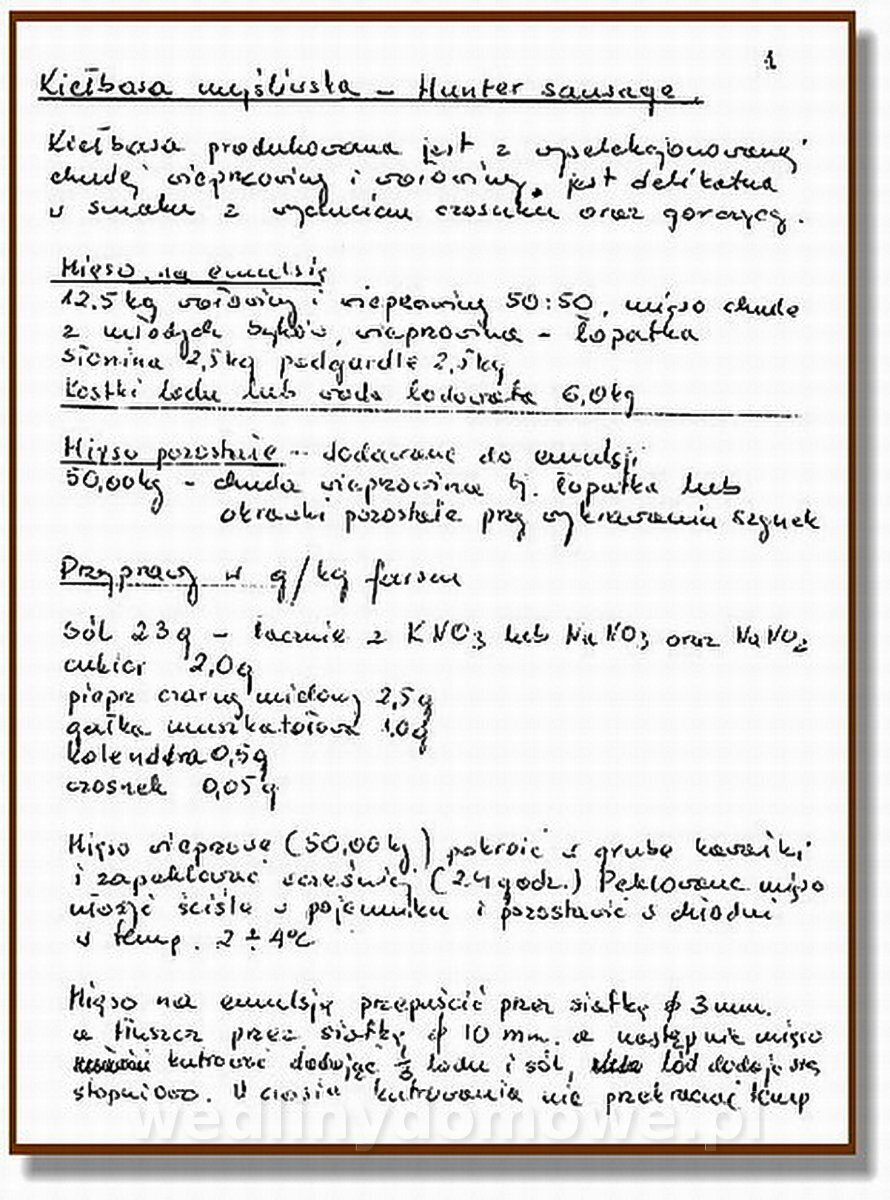 1
Kiełbasa myśliwska – Hunter sausage.
Kiełbasa produkowana jest z wyselekcjonowanej
chudej wieprzowiny i wołowiny, jest delikatna
w smaku z wyczuciem czosnku oraz gorczycy.
Mięso na emulsję
12.5 kg wołowiny i wieprzowiny 50:50, mięso chude
z młodych byków, wieprzowina – łopatka
Słonina 2,5kg podgardle 2,5kg
Kostki lodu lub woda lodowata 6,0kg
Mięso pozostałe – dodawane do emulsji
50,00kg – chuda wieprzowina tj. łopatka lub
okrawki pozostałe przy wykrawaniu szynek
Przyprawy w g/kg farszu
Sól 23g – łącznie z KNO3 lub NaNO3 oraz NaNO2
cukier 2,0g
pieprz czarny mielony 2,5g
gałka muszkatołowa 1.0g
kolendra 0,5g
czosnek 0,05g
Mięso wieprzowe (50,00kg) pokroić w grube kawałki
i zapeklować wcześniej (24 godz.) Peklowane mięso
włożyć ściśle w pojemniku i pozostawić w chłodni
w temp. 2 ÷ 4°C
Mięso na emulsję przepuścić przez siatkę ϕ 3mm.
a tłuszcz przez siatkę ϕ 10 mm. a następnie mięso
kutrować dodając 1/3 lodu i sól, lód dodaje się
stopniowo. W czasie kutrowania nie przekraczać temp
wedlinydomowe.pl